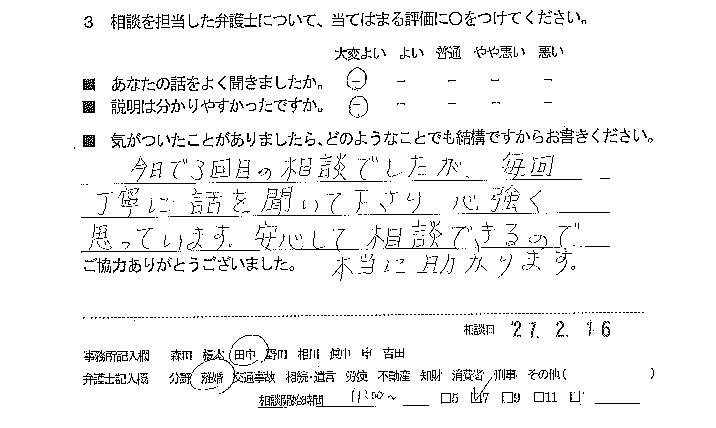 3 相談を担当した弁護士について、当てはまる評価に○をつけてください。
大変よい よい 普通 やや悪い 悪い
あなたの話をよく聞きましたか。 - - - - -
説明は分かりやすかったですか。 - - - - -
気がついたことがありましたら、どのようなことでも結構ですからお書きください。
今日で3回目の相談でしたが、毎回
丁寧に話を聞いて下さり心強く
思っています。安心して相談できるので
本当に助かります。
ご協力ありがとうございました。
相談日 27.2.16
事務所記入欄 森田 田中 野田 相川 吉田
弁護士記入欄 分野 離婚 交通事故 相続・遺言 労使 不動産 知財 消費者 刑事 その他( )
相談開始時間 11:00~ □5 □7 □9 □11 □